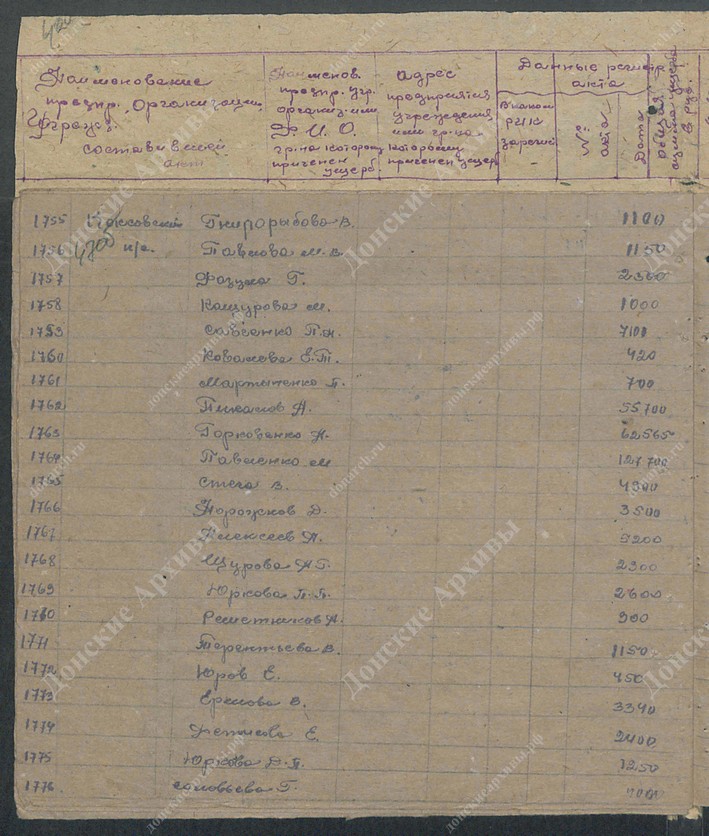 Наименование
предпр. Организации
Учрежд.
составивший
акт
Наименов.
предпр. учр.
организ. или
Ф. И. О.
гр-на которому
причинен
ущерб.
адрес
предприятия
учреждения
или гр-на
которому
причинен ущерб
Данные регистр
акта
РИК
№
акта
Дата
общая
сумма ущерба
в руб.
1755 Гнилорыбова В. 1100
1756 н/с. Павлова М. В. 1150
1757 Г. 2360
1758 Кашурова М. 1000
1759 Савченко П.Н. 7100
1760 Ковалева Е.Т. 420
1761 Мартыненко П. 700
1762 Пикалов А. 55700
1763 Горковенко Н. 62565
1764 Павленко М 127700
1765 Стега В. 4300
1766 Порожков Д. 3500
1767 Алексеев А. 3200
1768 Щурова А Г. 2300
1769 Юркова П.П. 2600
1770 Решетников А. 900
1771 Терентьева В. 1150
1772 Юров Е. 450
1773 Ермова В. 3340
1774 Е. 2400
1775 Юркова Д.П. 1250
1776 Соловьева Г.
Донские Архивы
donarch.ru
донскиеархивы.рф